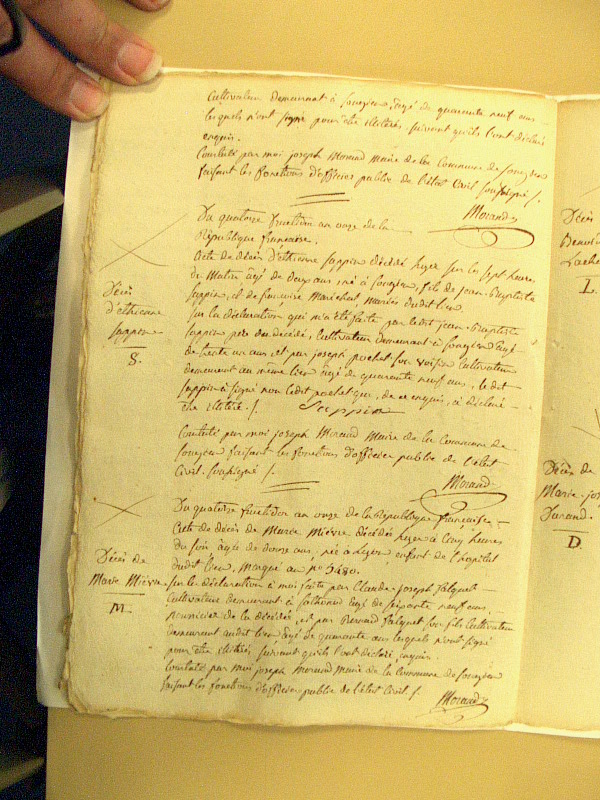 Cultivateur demeurant à Songieu âgé de quarante neuf ans
lesquels n'ont signé pour être illiterés suivant qu'ils l'ont déclaré
enquis.
Constaté par moi joseph Morand Maire de la Commune de Songieu
faisant les fonctions d'officier public de l'état Civil soussigné /.
Morand
Du quatorze fructidor an onze de la
République française.
Acte de décès d'éthienne Sappin décédé hyer sur les sept heures
du Matin âgé de deux ans né à Songieu, fils de jean-Baptiste
Sappin, et de Maréchal, mariés dudit lieu
sur la déclaration qui m'a été faite par ledit jean-Baptiste
Sappin père du décédé, Cultivateur demeurant à Songieu âgé
de trente un ans et par joseph pochat son voisin Cultivateur
demeurant au même lieu âgé de quarante neuf ans, le dit
Sappin a signé non ledit pochat qui, de ce enquis, a déclaré
être illitéré /. Seppin
Constaté par moi joseph Morand Maire de la Commune de
Songieu faisant les fonctions d'officier public de l'état
Civil soussigné /.
Morand
Décès
d'éthienne
Sappin
S.
Du quatorze fructidor an onze de la République française
Acte de décès de Marie Mièvre décédée hyer à Cinq heures
du soir âgée de douze ans, née à Lyon, enfant de l'hopital
dudit lieu, marqué au no. 5480.
sur la déclaration à moi faite par Claude-joseph Falquet
Cultivateur demeurant à Sothonod âgé de soixante neuf ans,
nourricier de la décédée, et par Bernard Falquet son fils Cultivateur
demeurant audit lieu âgé de quarante ans lesquels n'ont signé
pour être illitérés, suivant qu'ils l'ont déclaré, enquis
Constaté par moi joseph Morand Maire de la Commune de Songieu
faisant les fonctions d'officier public de l'état Civil /.
Morand
Décès de
Marie Mièvre
M.
Décès
Benoi
Lache
L.
Décès de
Marie-jo
Durand.
D.